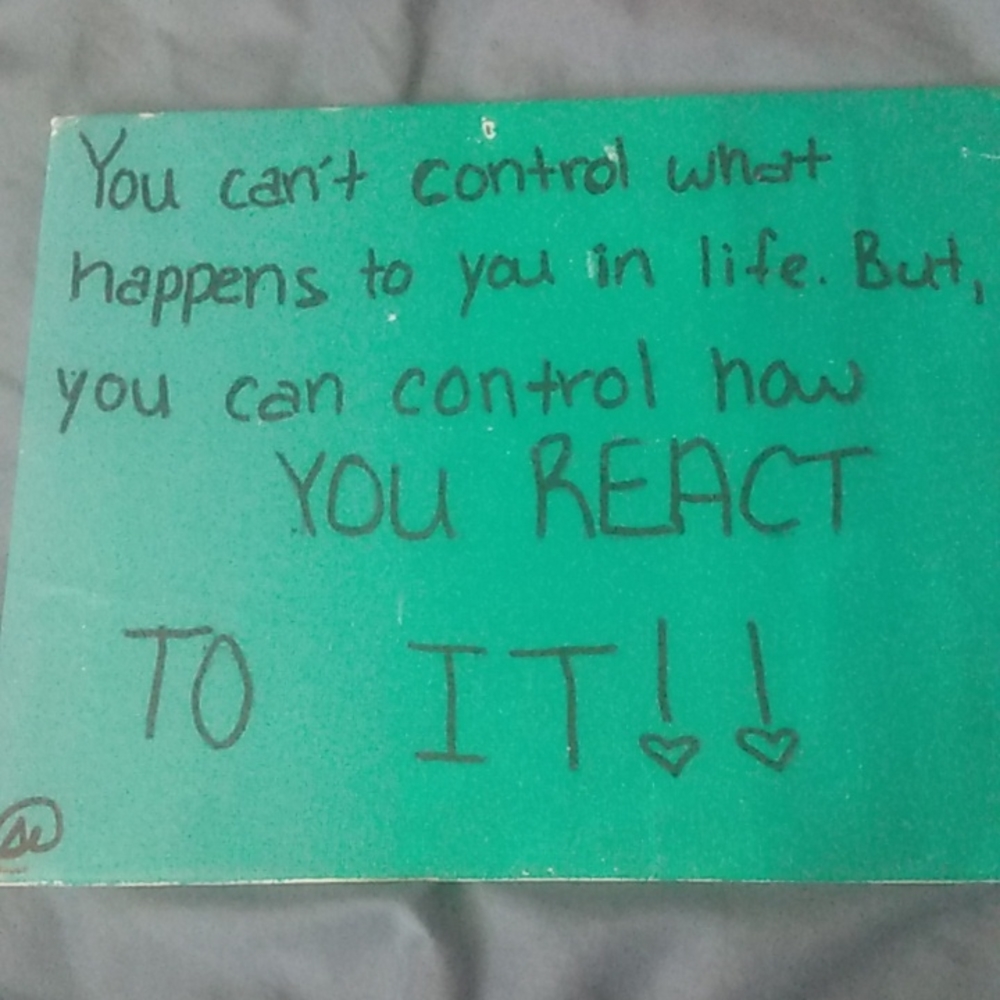 You can't control what
happens to you in life. But,
you can control how
YOU REACT
TO IT!!